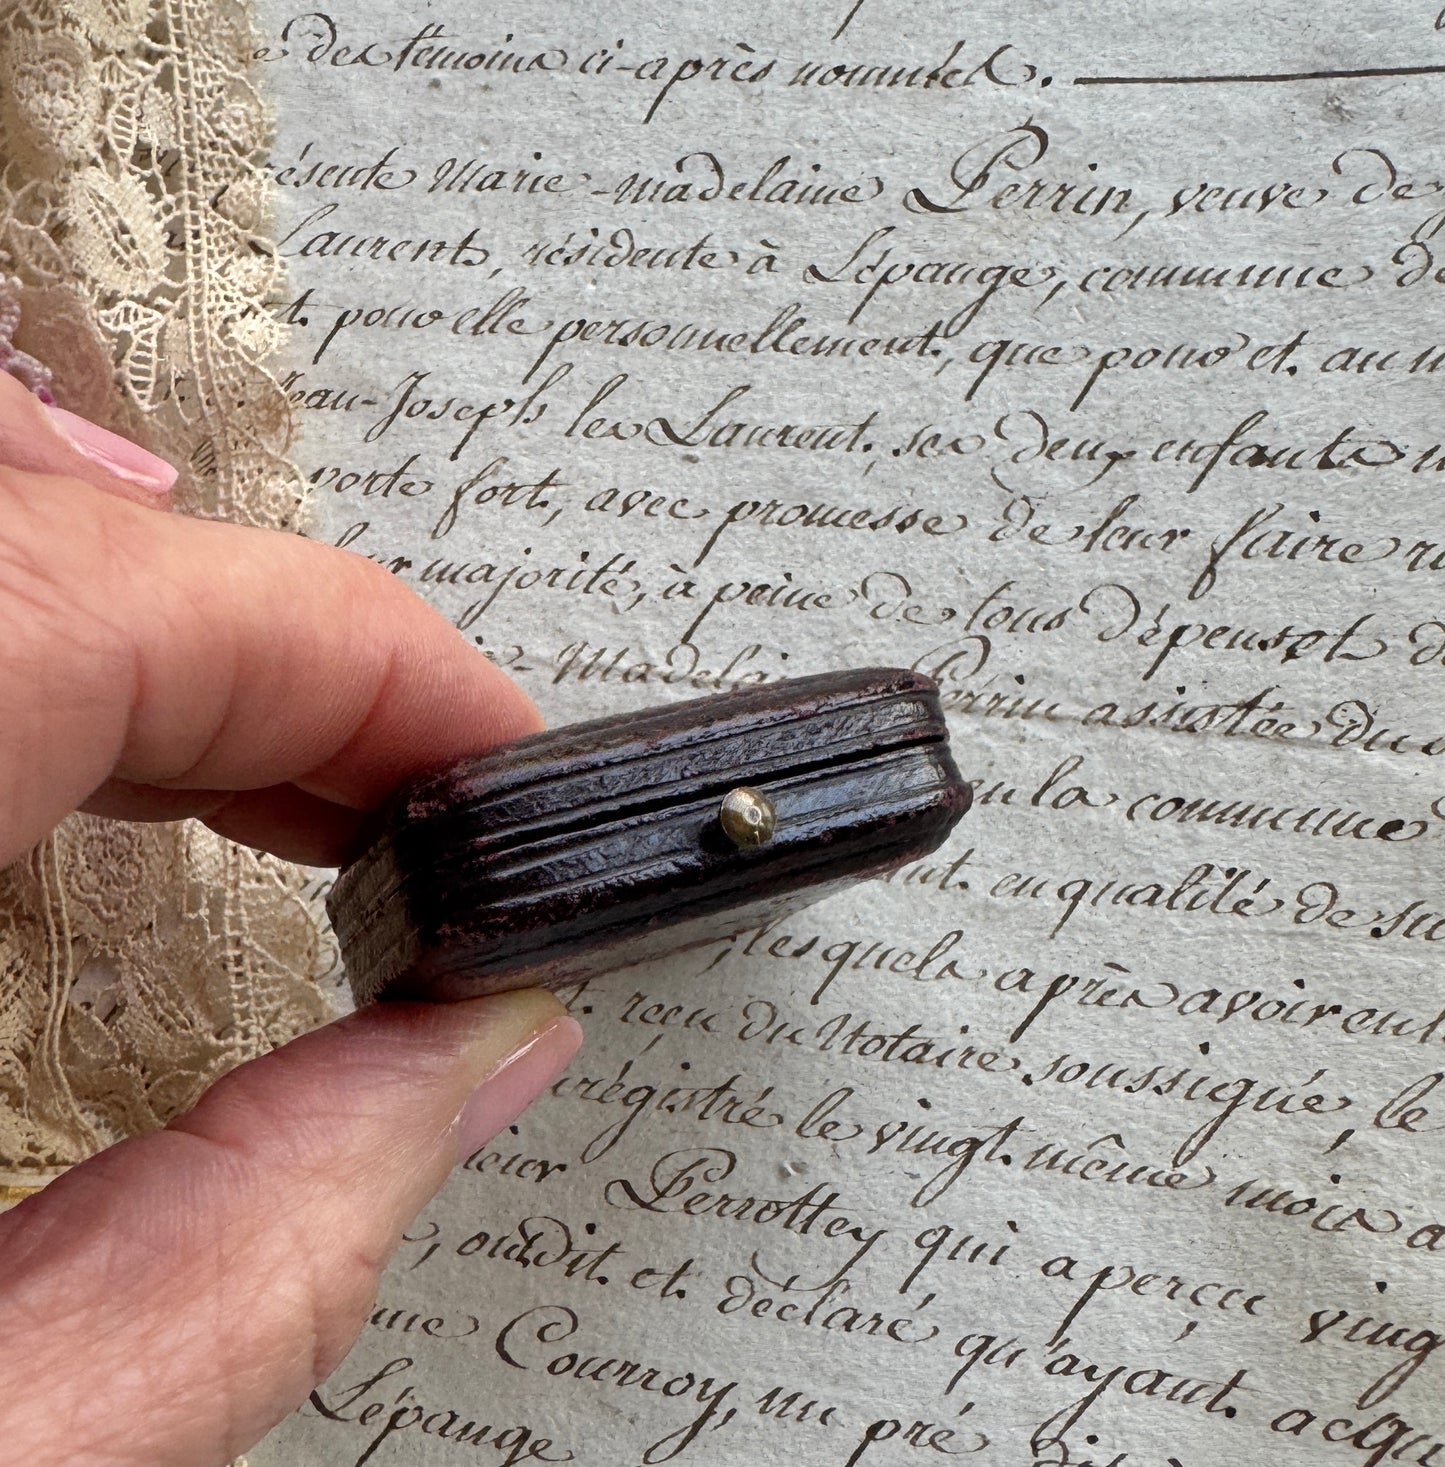 des témoins ci-après nommés.
Marie-madelaine Perrin, veuve de
Laurent, résidente à Lépange, commune de
pour elle personnellement, que pour et au
Jean-Joseph les Laurent, ses deux enfants
forte fort, avec promesse de leur faire
majorité, à peine de tous dépens et
Madelaine Perrin assistée du
la commune
en qualité de
lesquels après avoir
reçu du Notaire soussigné, le
le vingt même mois
Perrottey qui aperçu vingt
, ont dit et déclaré qu'ayant
Courroy, un pré
Lépange